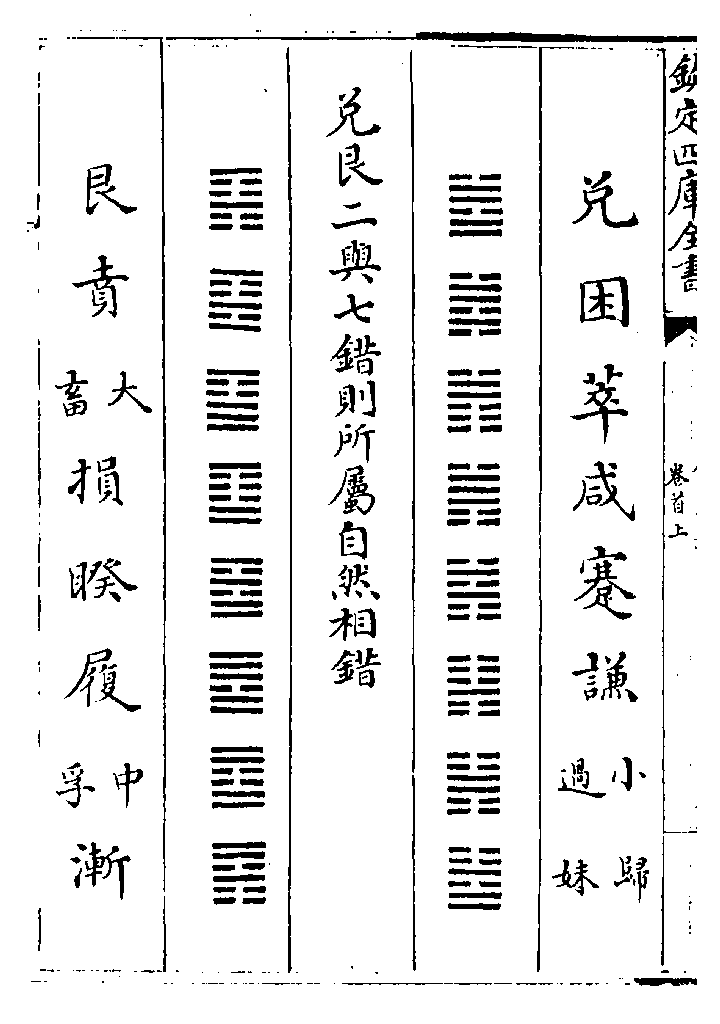 欽定四庫全書
卷首上
兌 困 萃 咸 蹇 謙 小過 歸妹
兌艮二與七錯則所屬自然相錯
艮 賁 大畜 損 睽 履 中孚 漸